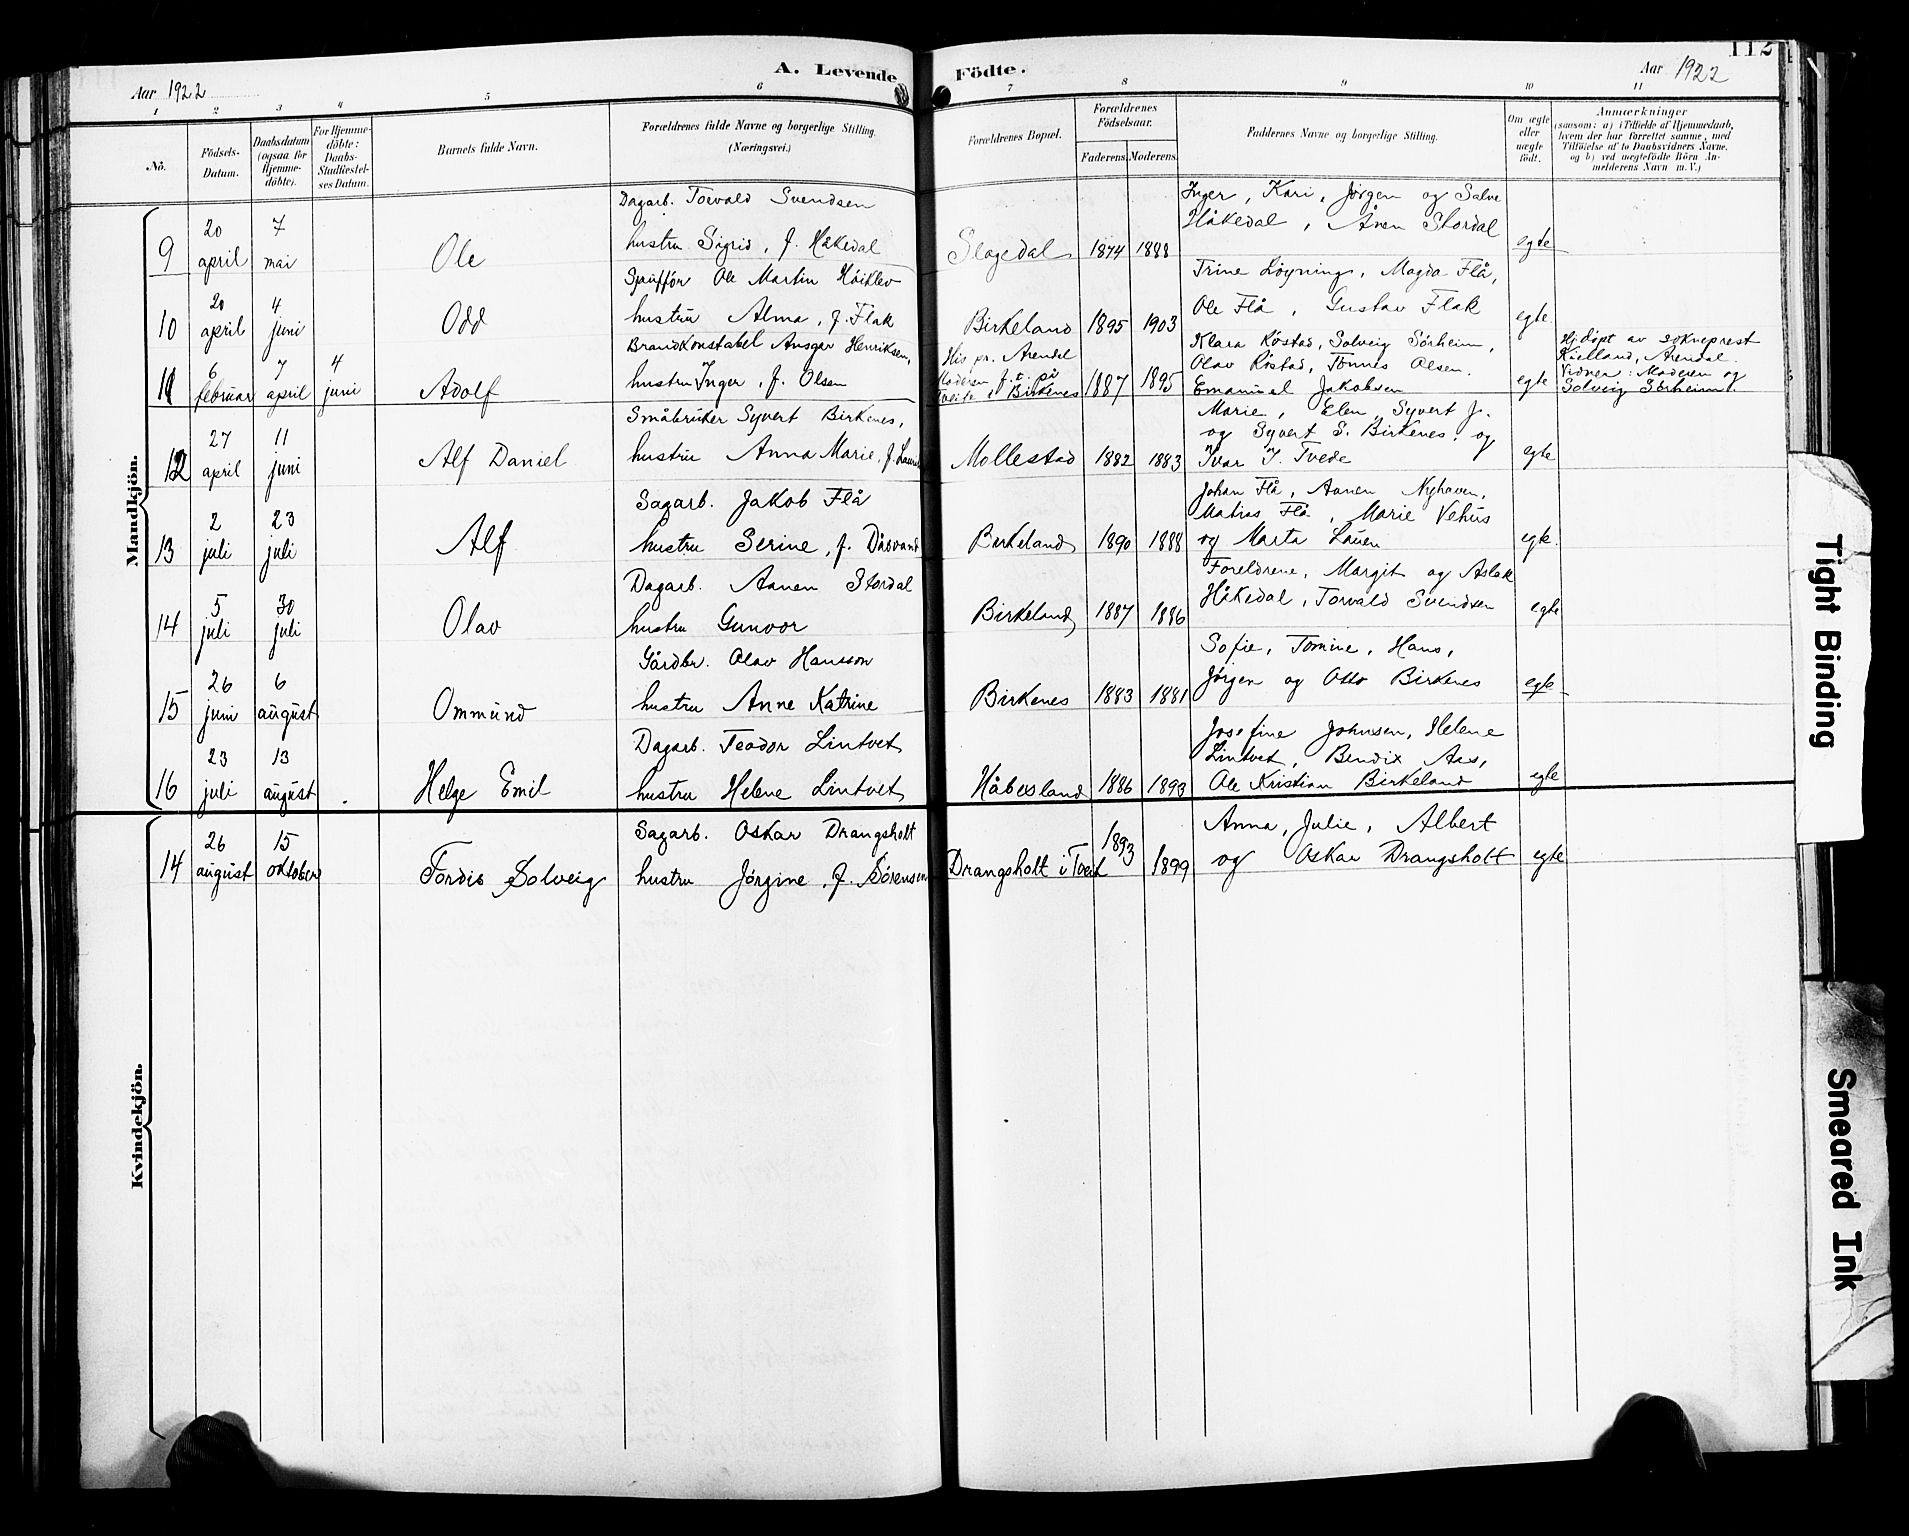 112
A. Levende Födte.
Aar 1922
Aar 1922
1 2 3 4 5 6 7 8 9 10 11
No.
Födsels-Datum.
Daabsdatum (ogsaa for Hjemme-döbte).
For Hjemme-döbte: Daabs-Stadfæstel-ses Datum.
Barnets fulde Navn.
Forældrenes fulde Navne og borgerlige Stilling.
(Næringsvei.)
Forældrenes Bopæl.
Forældrenes Födselsaar.
Faderens. Moderens.
Faddernes Navne og borgerlige Stilling.
Om ægte eller uægte födt.
Anmærkninger
(saasom: a) i Tilfælde af Hjemmedaab,
hvem der har forrettet samme, med
Tilföielse af to Daabsvidners Navne.
og b) ved uægtefödte Börn An-
melderens Navn m. V.)
Mandkjön.
9 20 april 7 mai Ole
Dagarb. Torvald Svendsen
hustru Sigrid, f. Håkedal
Slagedal 1874 1888
Inger, Kari, Jørgen og Salve
Håkedal, Ånen Stordal
egte
10 20 april 4 juni Odd
Ole Martin Høiklev
hustru Alma, f. Flak
Birkeland 1895 1903
Trine Løyning, Magda Flå,
Ole Flå, Gustav Flak
egte
11 6 februar 7 april 4 juni Adolf
Brandkonstabel Ansgar Henriksen,
hustru Inger, f. Olsen
His pr. Arendal
Moderen f. t. på
i Birkenes
1887 1895
Klara Røstad, Solveig Sørheim,
Olav Røstad, Tønnes Olsen.
Emanuel Jakobsen
egte
Hj.døpt av sokneprest
Kielland, Arendal.
Vidner: Moderen og
Solveig Sørheim.
12 27 april 11 juni Alf Daniel
Småbruker Syvert Birkenes,
hustru Anna Marie, f.
Mollestad 1882 1883
Marie, Elen, Syvert J.
og Syvert S. Birkenes. og
Ivar I. Tvede
egte
13 2 juli 23 juli Alf
Sagarb. Jakob Flå
hustru Serine, f. Dåsvand
Birkeland 1890 1888
Johan Flå, Aanen Nyhaven,
Matias Flå, Marie Vehus
og Marta Lauen
egte.
14 5 juli 30 juli Olav
Dagarb. Aanen Stordal
hustru Gunvor
Birkeland 1887 1886
Foreldrene, Margit og Aslak
Håkedal, Torvald Svendsen
egte
15 26 juni 6 august Ommund
Gårdbr. Olav Hansson
hustru Anne Katrine
Birkenes 1883 1881
Sofie, Tomine, Hans,
Jørgen og Otto Birkenes
egte
16 23 juli 13 august Helge Emil
Dagarb. Teodor Lintvet
hustru Helene Lintvet
Håbesland 1886 1893
Josefine Johnsen, Helene
Lintvet, Bendix Aas,
Ole Kristian Birkeland
egte
Kvindekjön.
14 26 august 15 oktober Tordis Solveig
Sagarb. Oskar Drangsholt
hustru Jørgine, f. Sørensen
Drangsholt i Tveit 1893 1899
Anna, Julie, Albert
og Oskar Drangsholt
egte
Tight Binding
Smeared Ink